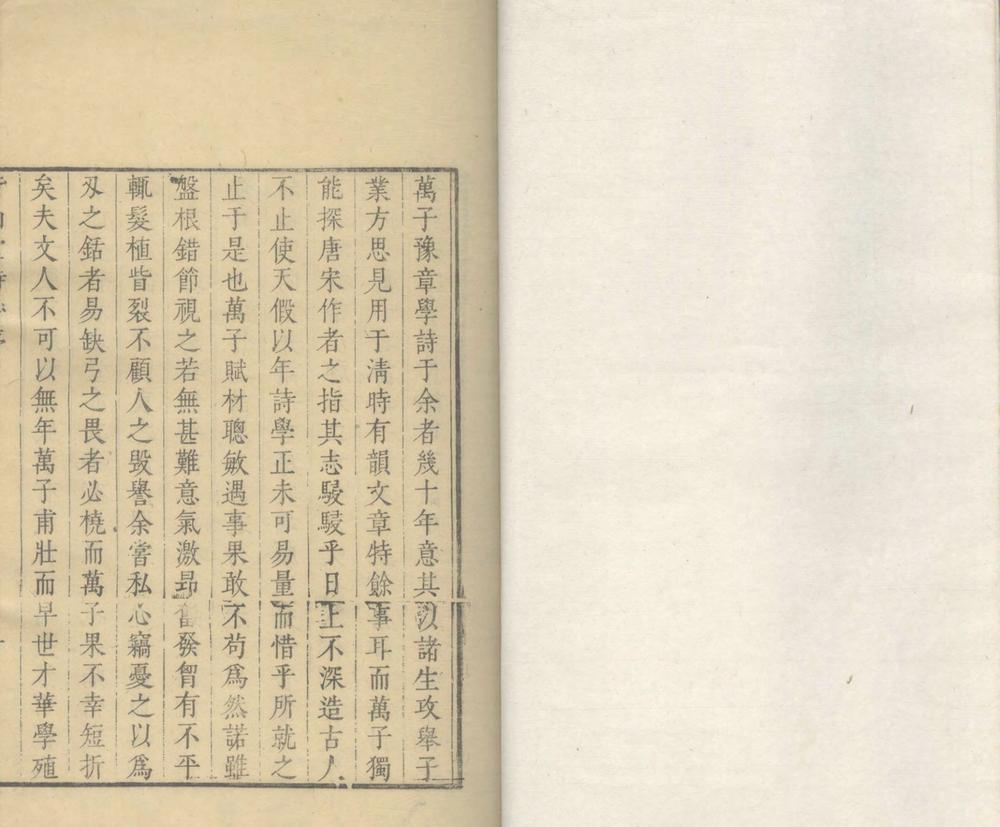 萬子豫章學詩于余者幾十年意其以諸生攻舉子
業方思見用于清時有韻文章特餘事耳而萬子獨
能探唐宋作者之指其志駸駸乎日上不深造古人
不止使天假以年詩學正未可易量而惜乎所就之
止于是也萬子賦材聰敏遇事果敢不苟爲然諾雖
盤根錯節視之若無甚難意氣激昂奮發胷有不平
輒髮植眥裂不顧人之毁譽余嘗私心竊憂之以爲
刄之銛者易缺弓之畏者必橈而萬子果不幸短折
矣夫文人不可以無年萬子甫壯而早世才華學殖